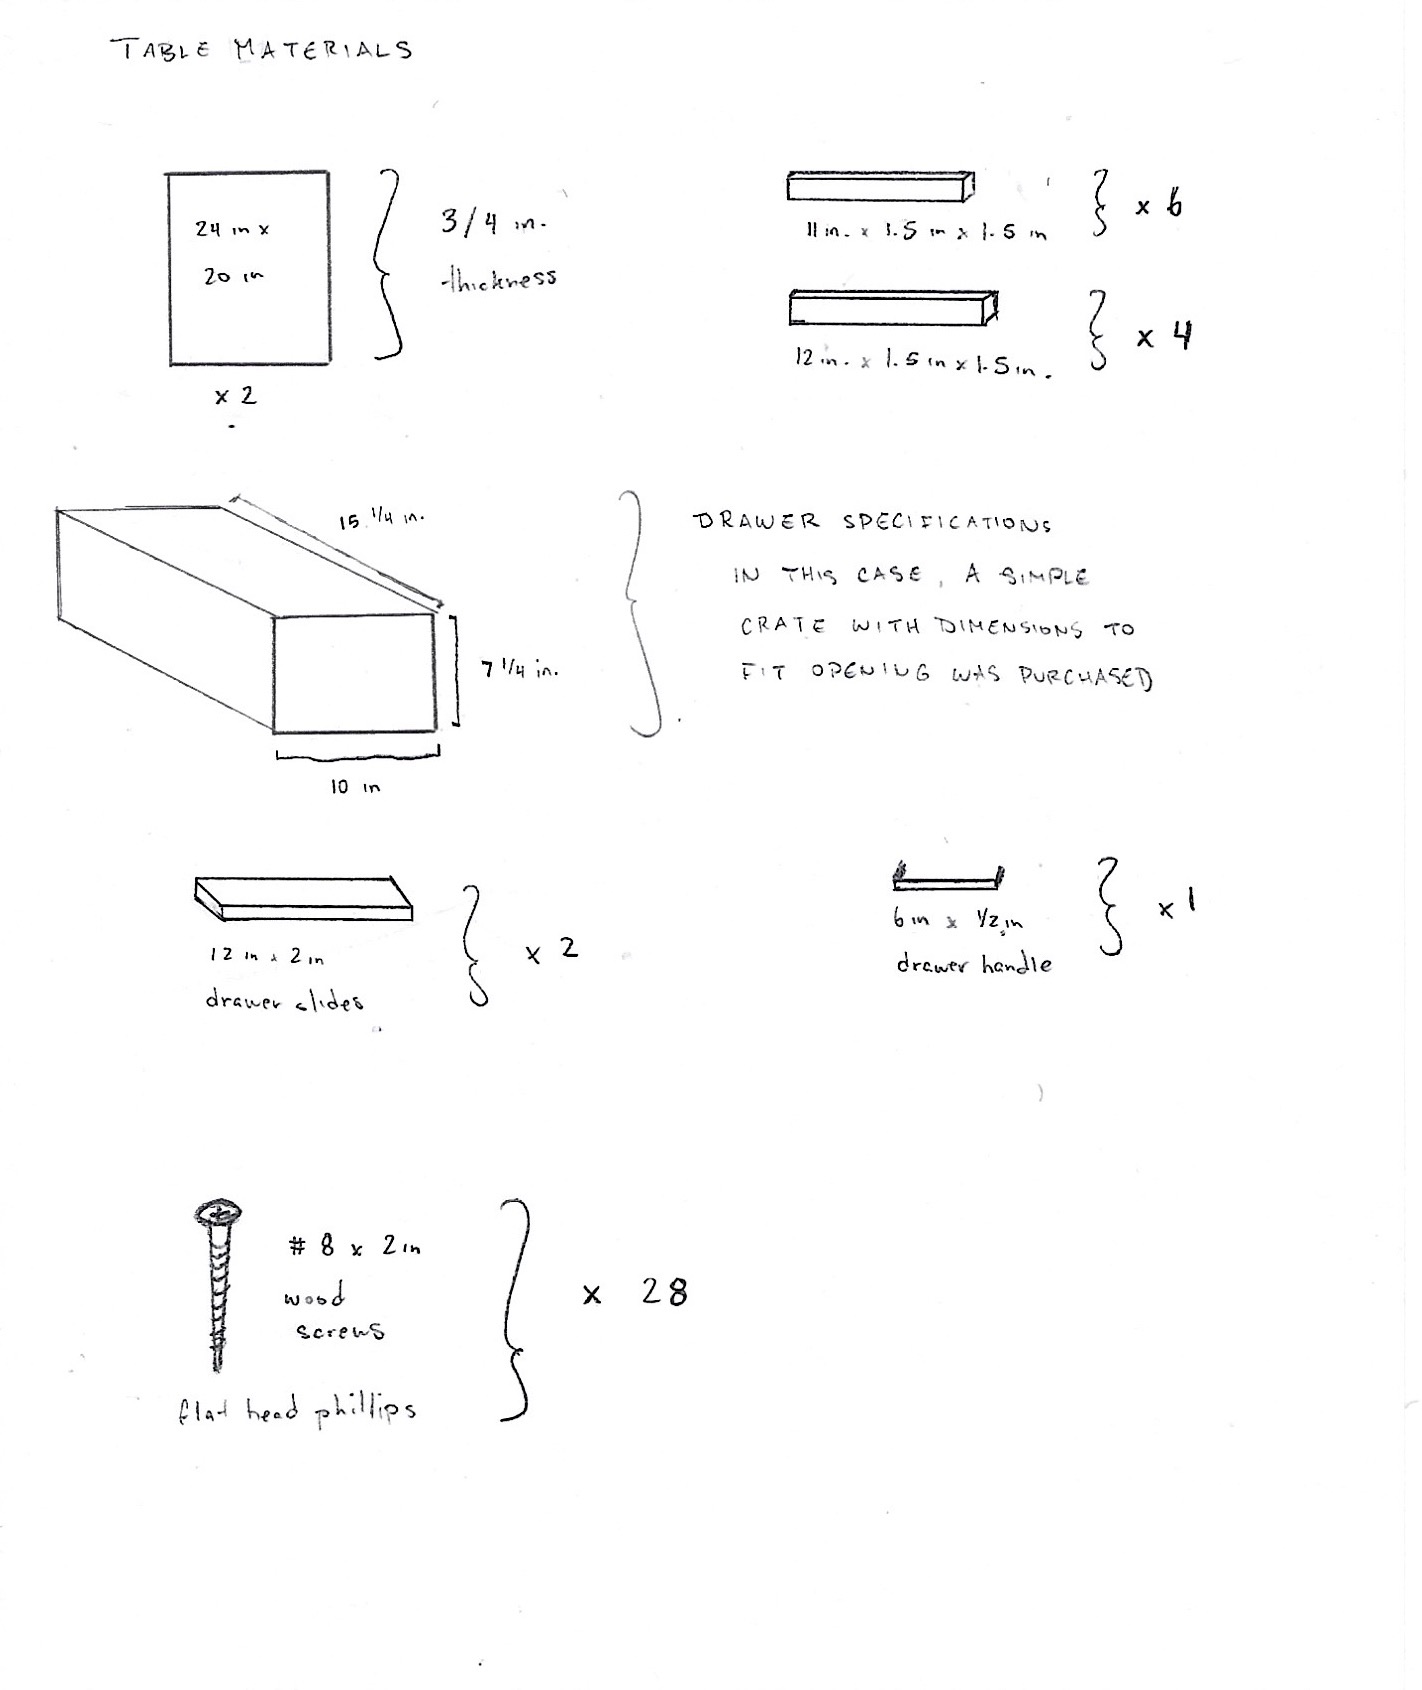 TABLE MATERIALS
24 in x
20 in
x 2
3/4 in.
thickness
11 in. x 1.5 in x 1.5 in
x 6
12 in. x 1.5 in x 1.5 in.
x 4
15 1/4 in.
7 1/4 in.
10 in
DRAWER SPECIFICATIONS
IN THIS CASE, A SIMPLE
CRATE WITH DIMENSIONS TO
FIT OPENING WAS PURCHASED
12 in x 2 in
drawer slides
x 2
6 in x 1/2 in
drawer handle
x 1
# 8 x 2 in
wood
screws
flat head phillips
x 28